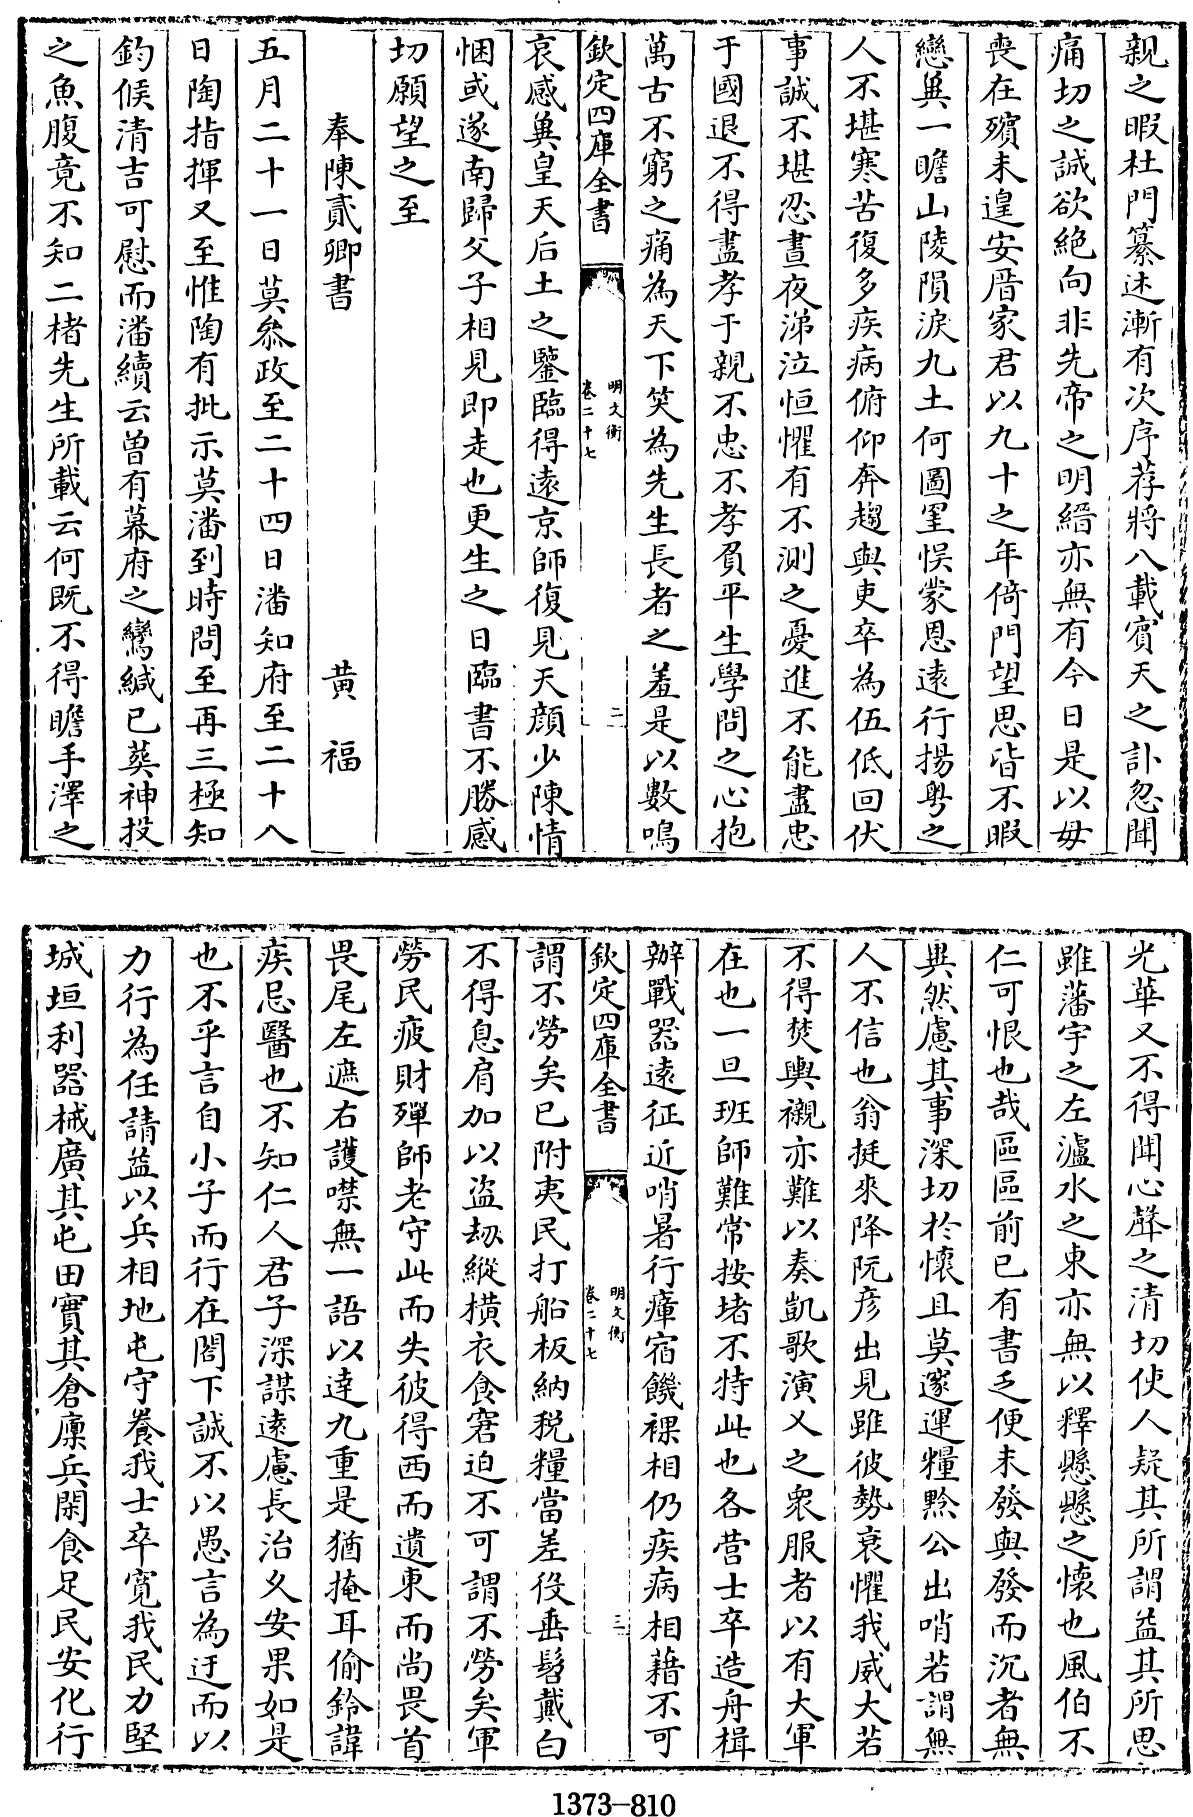 親之暇杜門纂述漸有次序荐將八載賓天之訃忽聞
痛切之誠欲絶向非先帝之明縉亦無有今日是以毋
喪在殯未遑安厝家君以九十之年倚門望思皆不暇
戀兾一瞻山陵隕淚九土何圖罣悞蒙恩遠行揚粤之
人不堪寒苦復多疾病俯仰奔趨與吏卒為伍低回伏
事誠不堪忍晝夜涕泣恒懼有不測之憂進不能盡忠
于國退不得盡孝于親不忠不孝負平生學問之心抱
萬古不窮之痛為天下笑為先生長者之羞是以數鳴
欽定四庫全書
明文衡
卷二十七
二
哀感兾皇天后土之鑒臨得遠京師復見天顔少陳情
悃或遂南歸父子相見即走也更生之日臨書不勝感
切願望之至
奉陳貳卿書 黄福
五月二十一日莫叅政至二十四日潘知府至二十八
日陶指揮又至惟陶有批示莫潘到時問至再三極知
鈞候清吉可慰而潘續云曽有幕府之鸞緘已葵神投
之魚腹竟不知二楮先生所載云何既不得瞻手澤之
光華又不得聞心聲之清切使人疑其所謂益其所思
雖藩宇之左瀘水之東亦無以釋懸懸之懷也風伯不
仁可恨也哉區區前已有書乏便未發與發而沉者無
異然慮其事深切於懷且莫邃運糧黔公出哨若謂無
人不信也翁挺來降阮彦出見雖彼勢衰懼我威大若
不得焚輿襯亦難以奏凱歌演乂之衆服者以有大軍
在也一旦班師難常按堵不特此也各营士卒造舟楫
辦戰器遠征近哨暑行瘴宿饑裸相仍疾病相藉不可
欽定四庫全書
明文衡
卷二十七
三
謂不勞矣已附夷民打船板納税糧當差役垂髫戴白
不得息肩加以盗刼縱横衣食窘迫不可謂不勞矣軍
勞民疲財殫師老守此而失彼得西而遺東而尚畏首
畏尾左遮右護噤無一語以逹九重是猶掩耳偷鈴諱
疾忌醫也不知仁人君子深謀遠慮長治乆安果如是
也不乎言自小子而行在閤下誠不以愚言為迂而以
力行為任請益以兵相地屯守養我士卒寛我民力堅
城垣利器械廣其屯田實其倉廪兵閑食足民安化行
1373-810